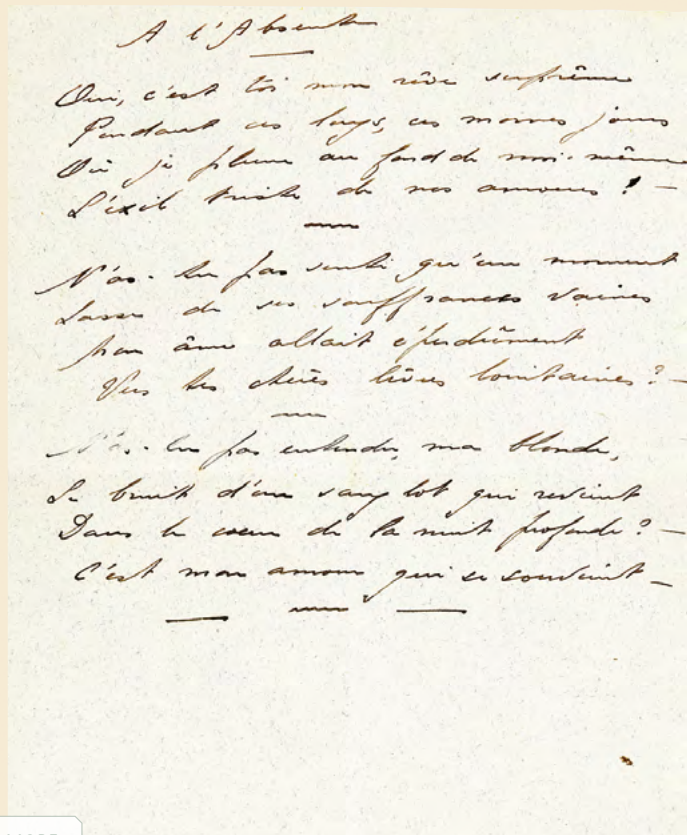 A l'Absente
Oui, c'est toi mon rêve suprême
Pendant ces longs, ces mornes jours
Où je pleure au fond de moi-même
L'exil triste de nos amours ! —
N'as-tu pas senti qu'un moment
Lasse de ses souffrances vaines
Mon âme allait éperdûment
Vers tes chères lèvres lointaines ? —
N'as-tu pas entendu, ma blonde,
Le bruit d'un sanglot qui revient
Dans le cœur de la nuit profonde ? —
C'est mon amour qui se souvient —